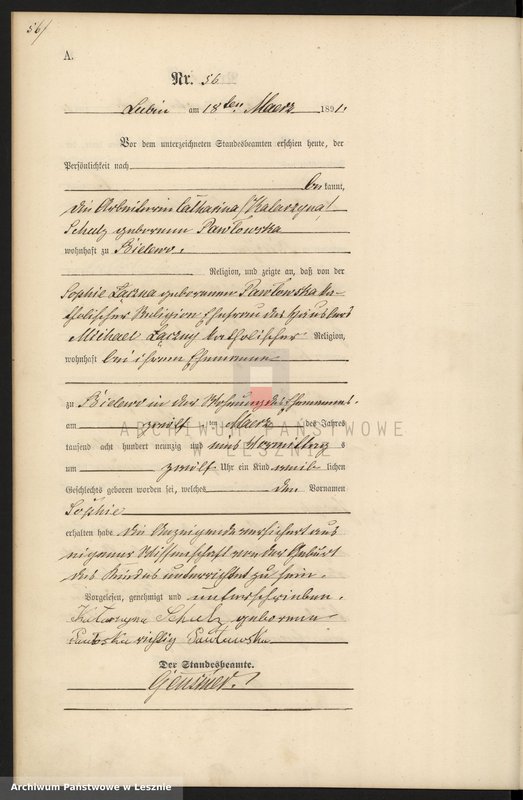 56/
A.
Nr. 56
Lubin am 18ten Maerz 1891.
Vor dem unterzeichneten Standesbeamten erschien heute, der
Persönlichkeit nach
be kannt,
die Arbeiterin Catharina /Katarzyna/
Schulz geborene Pawlowska
wohnhaft zu Bielewo,
Religion, und zeigte an, daß von der
Sophie Łączna geborenen Pawlowska ka-
tholischer Religion Ehefrau des Häuslers
Michael Łączny katholischer Religion,
wohnhaft bei ihrem Ehemanne
zu Bielewo in der Wohnung des Ehemannes.
am zwölf ten Maerz des Jahres
tausend acht hundert neunzig und eins Vormittag s
um zwölf Uhr ein Kind weib lichen
Geschlechts geboren worden sei, welches den Vornamen
Sophie
erhalten habe die Anzeigende versichert aus
eigener Wissenschaft von der Geburt
des Kindes unterrichtet zu sein.
Vorgelesen, genehmigt und unterschrieben.
Katarzyna Schulz geborene
richtig Pawlowska
Der Standesbeamte.
ARCHIWUM PAŃSTWOWE
W LESZNIE
Archiwum Państwowe w Lesznie